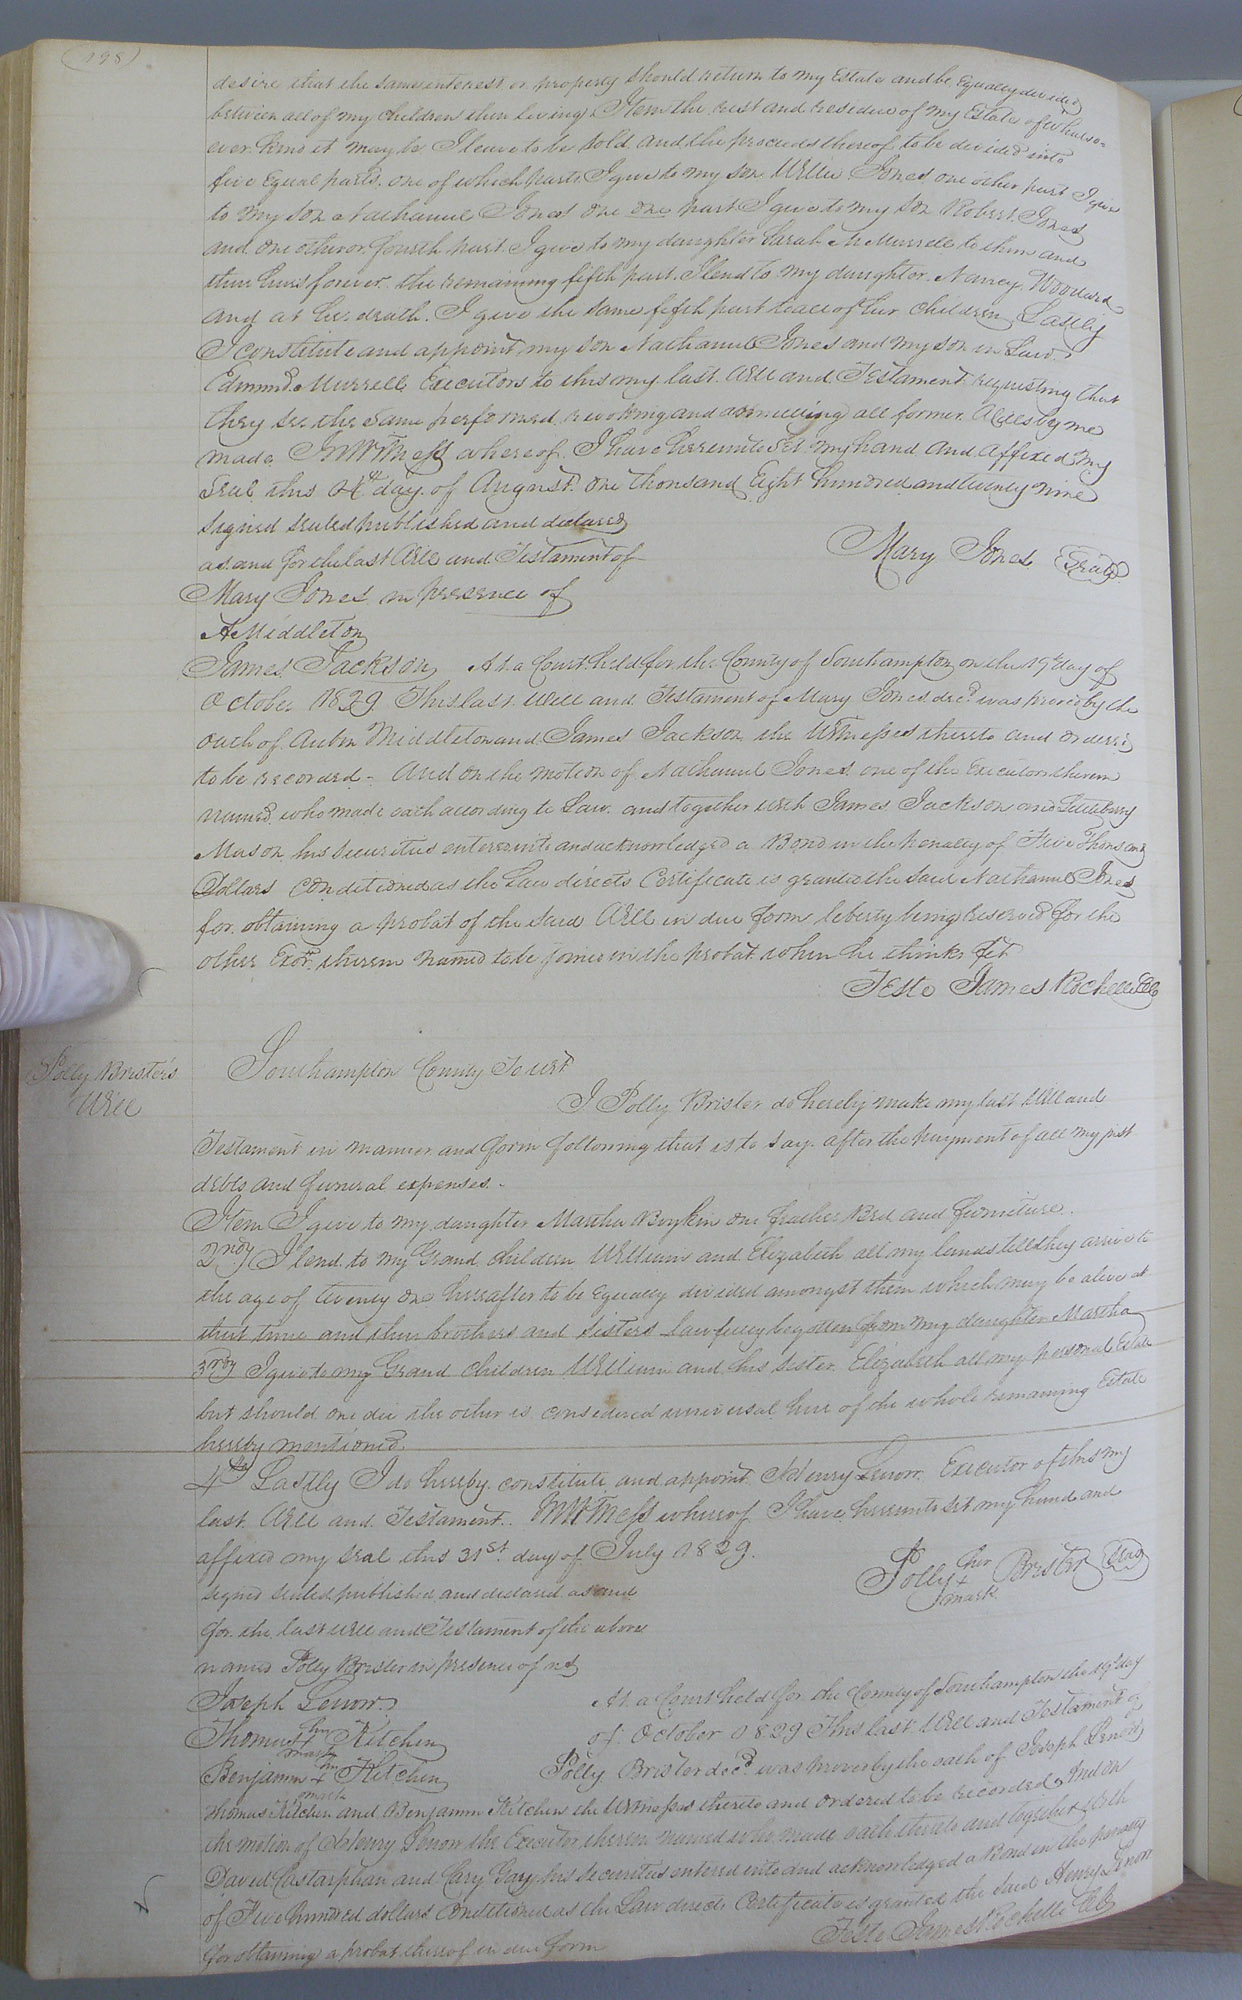 (198)
desire that the same interest or property should return to my Estate and be Equally divided
between all of my Children then living. Item the rest and residue of my Estate of whatso-
ever kind it may be I leave to be sold and the proceeds thereof to be divided into
five Equal parts. one of which parts I give to my son Willie Jones one other part I give
to my son Nathaniel Jones one one part I give to my son Robert Jones
and one other or fourth part I give to my daughter Sarah Murrell to them and
their heirs forever the remaining fifth part I lend to my daughter Nancy Woodard
and at her death I give the same fifth part to all of her Children Lastly
I constitute and appoint my son Nathaniel Jones and my son in Law
Edmund Murrell Executors to this my last Will and Testament requesting that
they see the same performed revoking and annulling all former Wills by me
made. In Witness whereof I have hereunto set my hand and affixed my
Seal this 4th day of August One thousand Eight hundred and twenty nine
Signed sealed published and declared
as and for the last Will and Testament of
Mary Jones Seal
Mary Jones in presence of
A Middleton
James Jackson At a Court held for the County of Southampton on the 19th day of
October 1829 This last Will and Testament of Mary Jones decd was proved by the
oath of Middleton and James Jackson the Witnesses thereto and ordered
to be recorded - And on the motion of Nathaniel Jones one of the Executors therein
named who made oath according to Law and together with James Jackson and Littleberry
Mason his securities entered into and acknowledged a Bond in the penalty of Five Thousand
Dollars Conditioned as the Law directs Certificate is granted the said Nathaniel Jones
for obtaining a probat of the said Will in due form liberty being reserved for the
other Exor therein named to be joined in the probat when he thinks fit
Teste James Rochelle CC
Polly Brister's
Will
Southampton County To wit
I Polly Brister do hereby make my last Will and
Testament in manner and form following that is to say after the payment of all my just
debts and funeral expenses.
Item I give to my daughter Martha Boykin one feather Bed and furniture.
2ndy I lend to my Grand children William and Elizabeth all my lands till they arrive to
the age of twenty one hereafter to be Equally divided amongst them which may be alive at
that time and their brothers and sisters lawfully begotten from my daughter Martha
3rdy I give to my Grand Children William and his sister Elizabeth all my personal Estate
but should one die the other is considered universal heir of the whole remaining Estate
hereby mentioned.
4th Lastly I do hereby constitute and appoint Henry Lenow Executor of this my
last Will and Testament. In Witness whereof I have hereunto set my hand and
affixed my seal this 31st day of July 1829.
signed sealed published and declared as and
Polly her + mark Brister Seal
for the last Will and Testament of the above
named Polly Brister in presence of us
Joseph Lenow
Thomas his + mark Kitchen
Benjamin his + mark Kitchen
At a Court held for the County of Southampton the 19th day
of October 1829 This last Will and Testament of
Polly Brister decd was proved by the oath of Joseph Lenow
Thomas Kitchen and Benjamin Kitchen the Witnesses thereto and ordered to be recorded And on
the motion of Henry Lenow the Executor therein named who made oath thereto and together with
David Castarphan and Cary Gay his securities entered into and acknowledged a Bond in the penalty
of Five hundred dollars Conditioned as the Law directs Certificate is granted the said Henry Lenow
for obtaining a probat thereof in due form
Teste James Rochelle CC